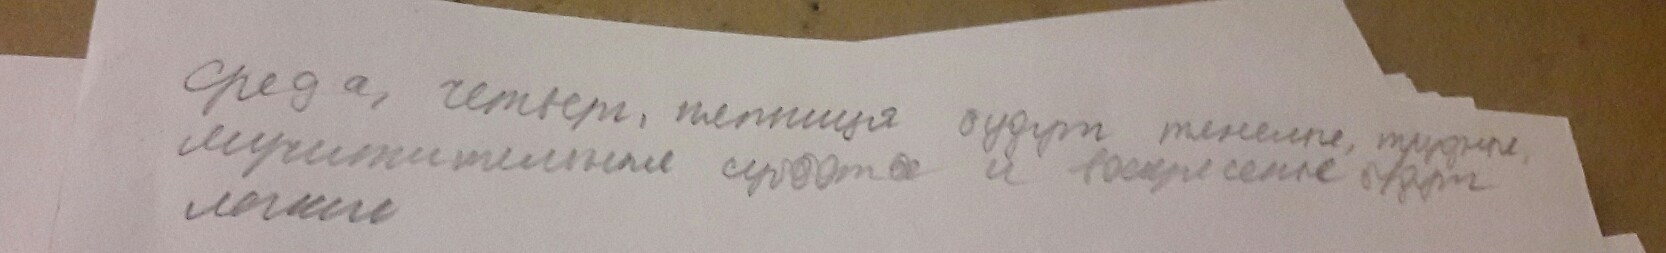 среда, четверг, пятница будут тяжелые, трудные,
мучительная суббота и воскресенье будут
легкие